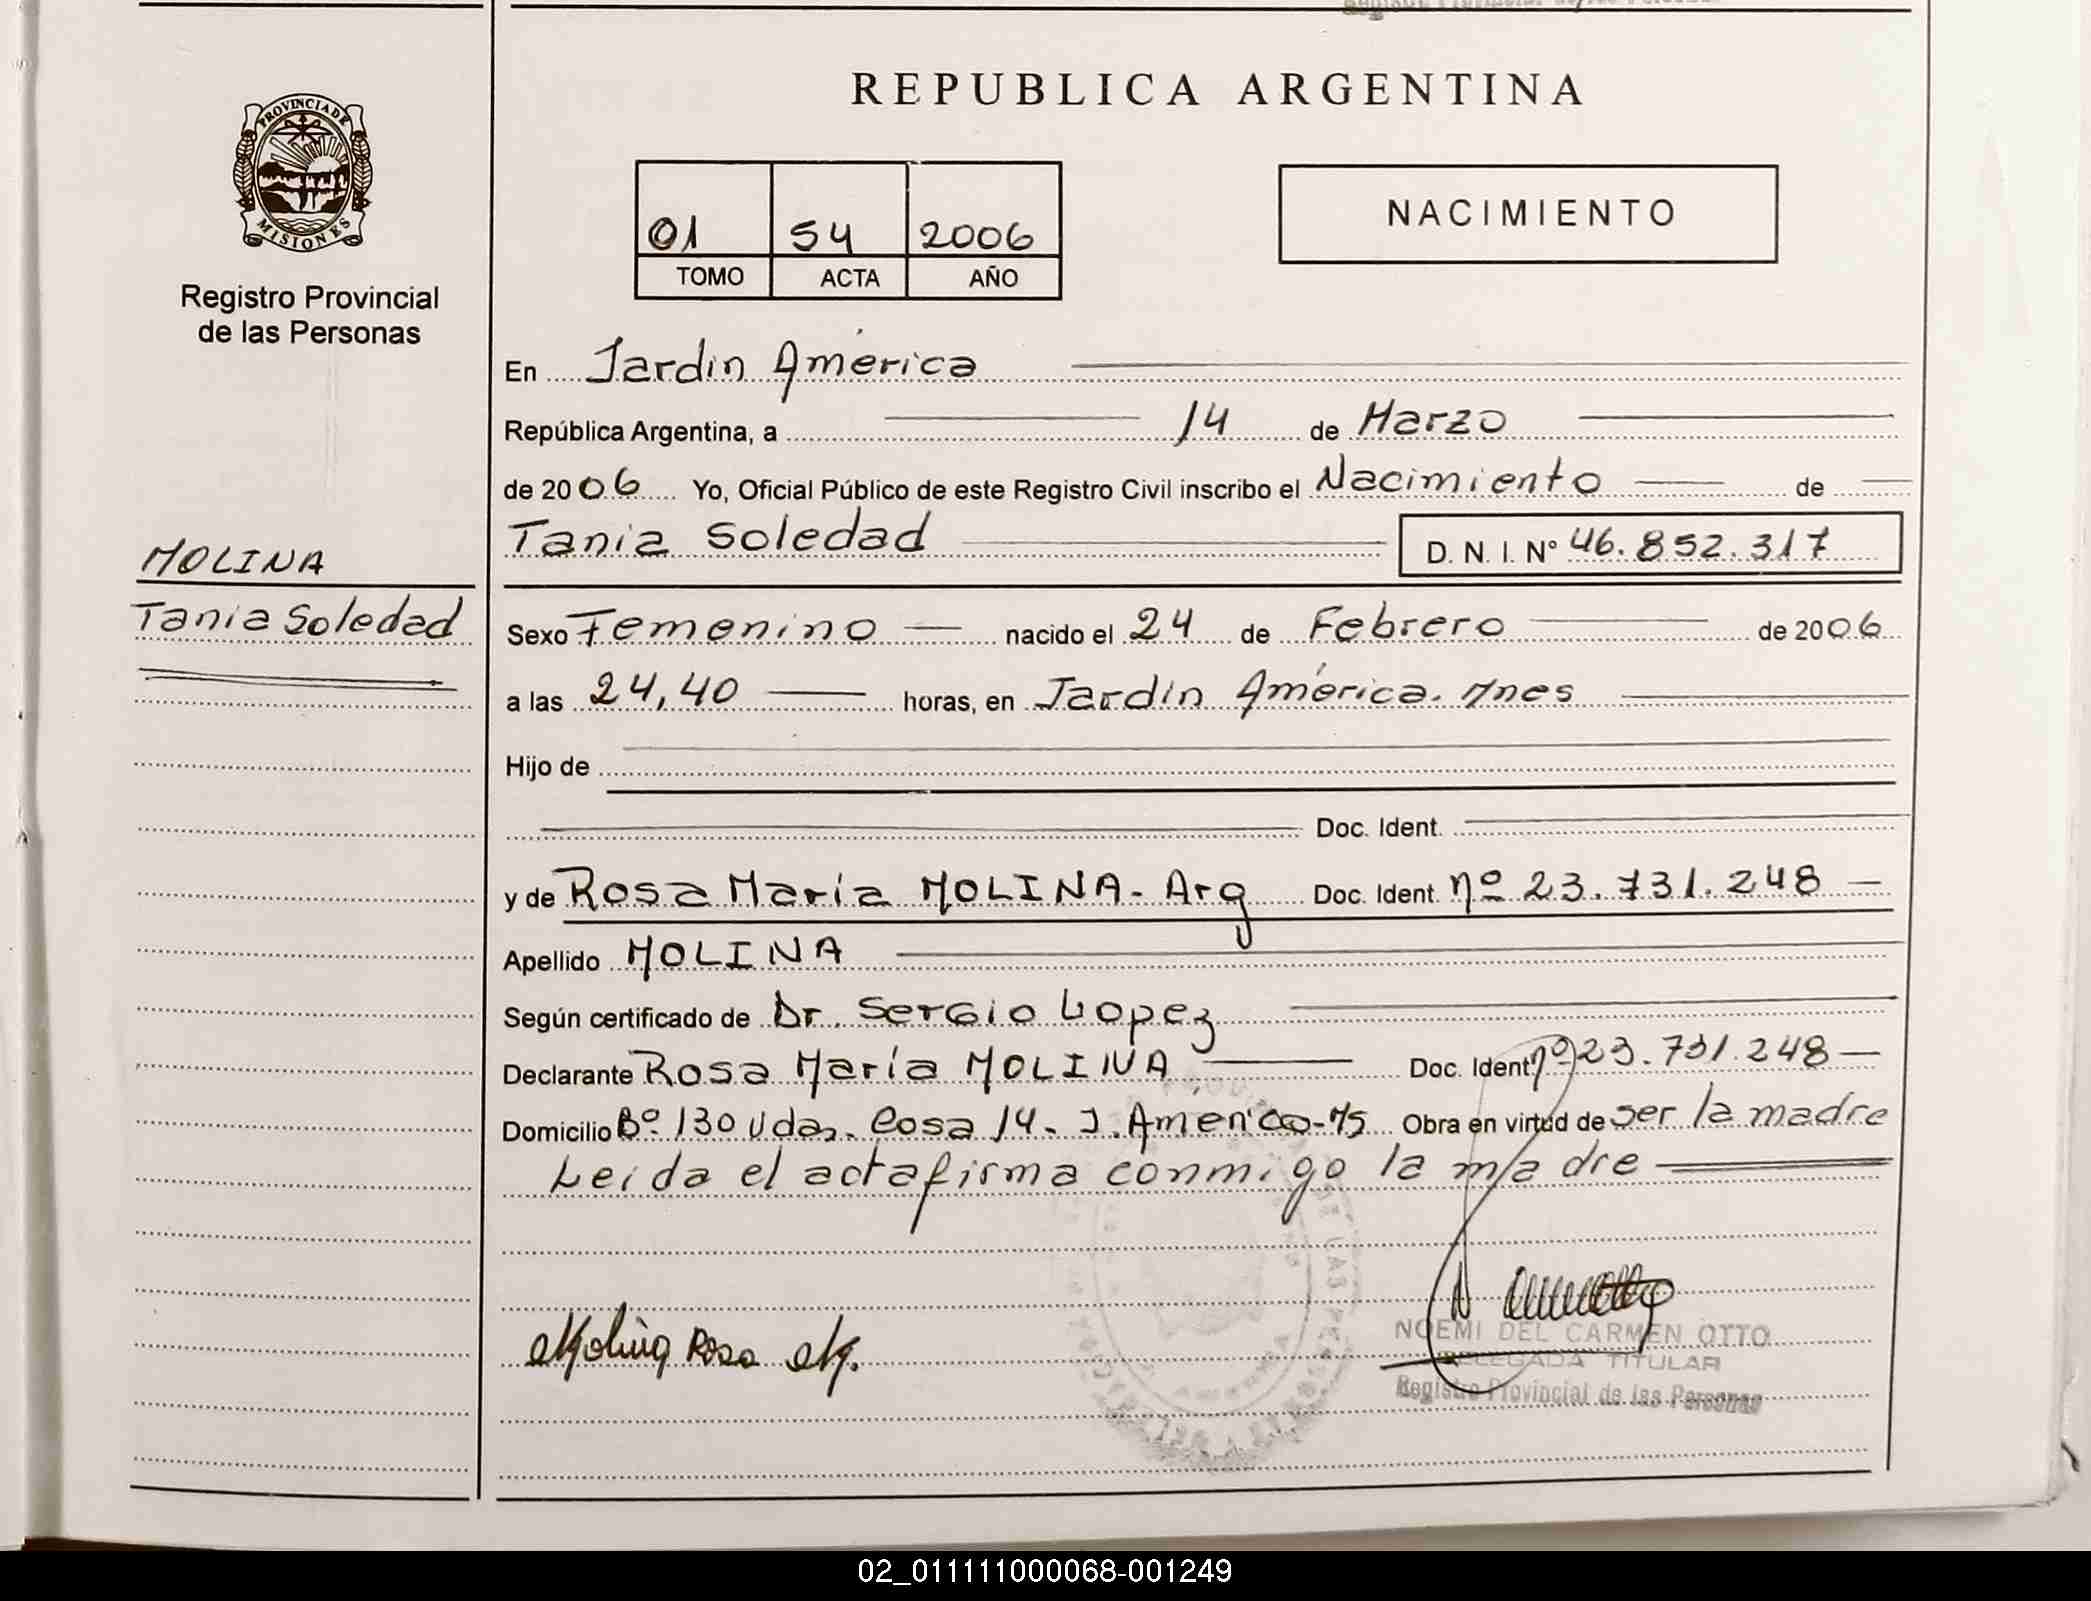 REPUBLICA ARGENTINA
PROVINCIA DE
MISIONES
Registro Provincial
de las Personas
01 54 2006
TOMO ACTA AÑO
NACIMIENTO
En Jardín América
República Argentina, a 14 de Marzo
de 2006 Yo, Oficial Público de este Registro Civil inscribo el Nacimiento de
Tania Soledad D. N. I. Nº 46.852.317
MOLINA
Tania Soledad
Sexo Femenino nacido el 24 de Febrero de 2006
a las 24,40 horas, en Jardín América. Mnes
Hijo de
Doc. Ident.
y de Rosa María MOLINA - Arg Doc. Ident. nº 23.731.248
Apellido MOLINA
Según certificado de Dr. Sergio Lopez
Declarante Rosa María MOLINA Doc. Ident. nº 23.731.248
Domicilio Bº 130 Vdas. Casa 14 - J. América - Ms Obra en virtud de ser la madre
Leída el acta firma conmigo la madre
Molina Rosa M.
NOEMI DEL CARMEN OTTO
DELEGADA TITULAR
Registro Provincial de las Personas
02_011111000068-001249